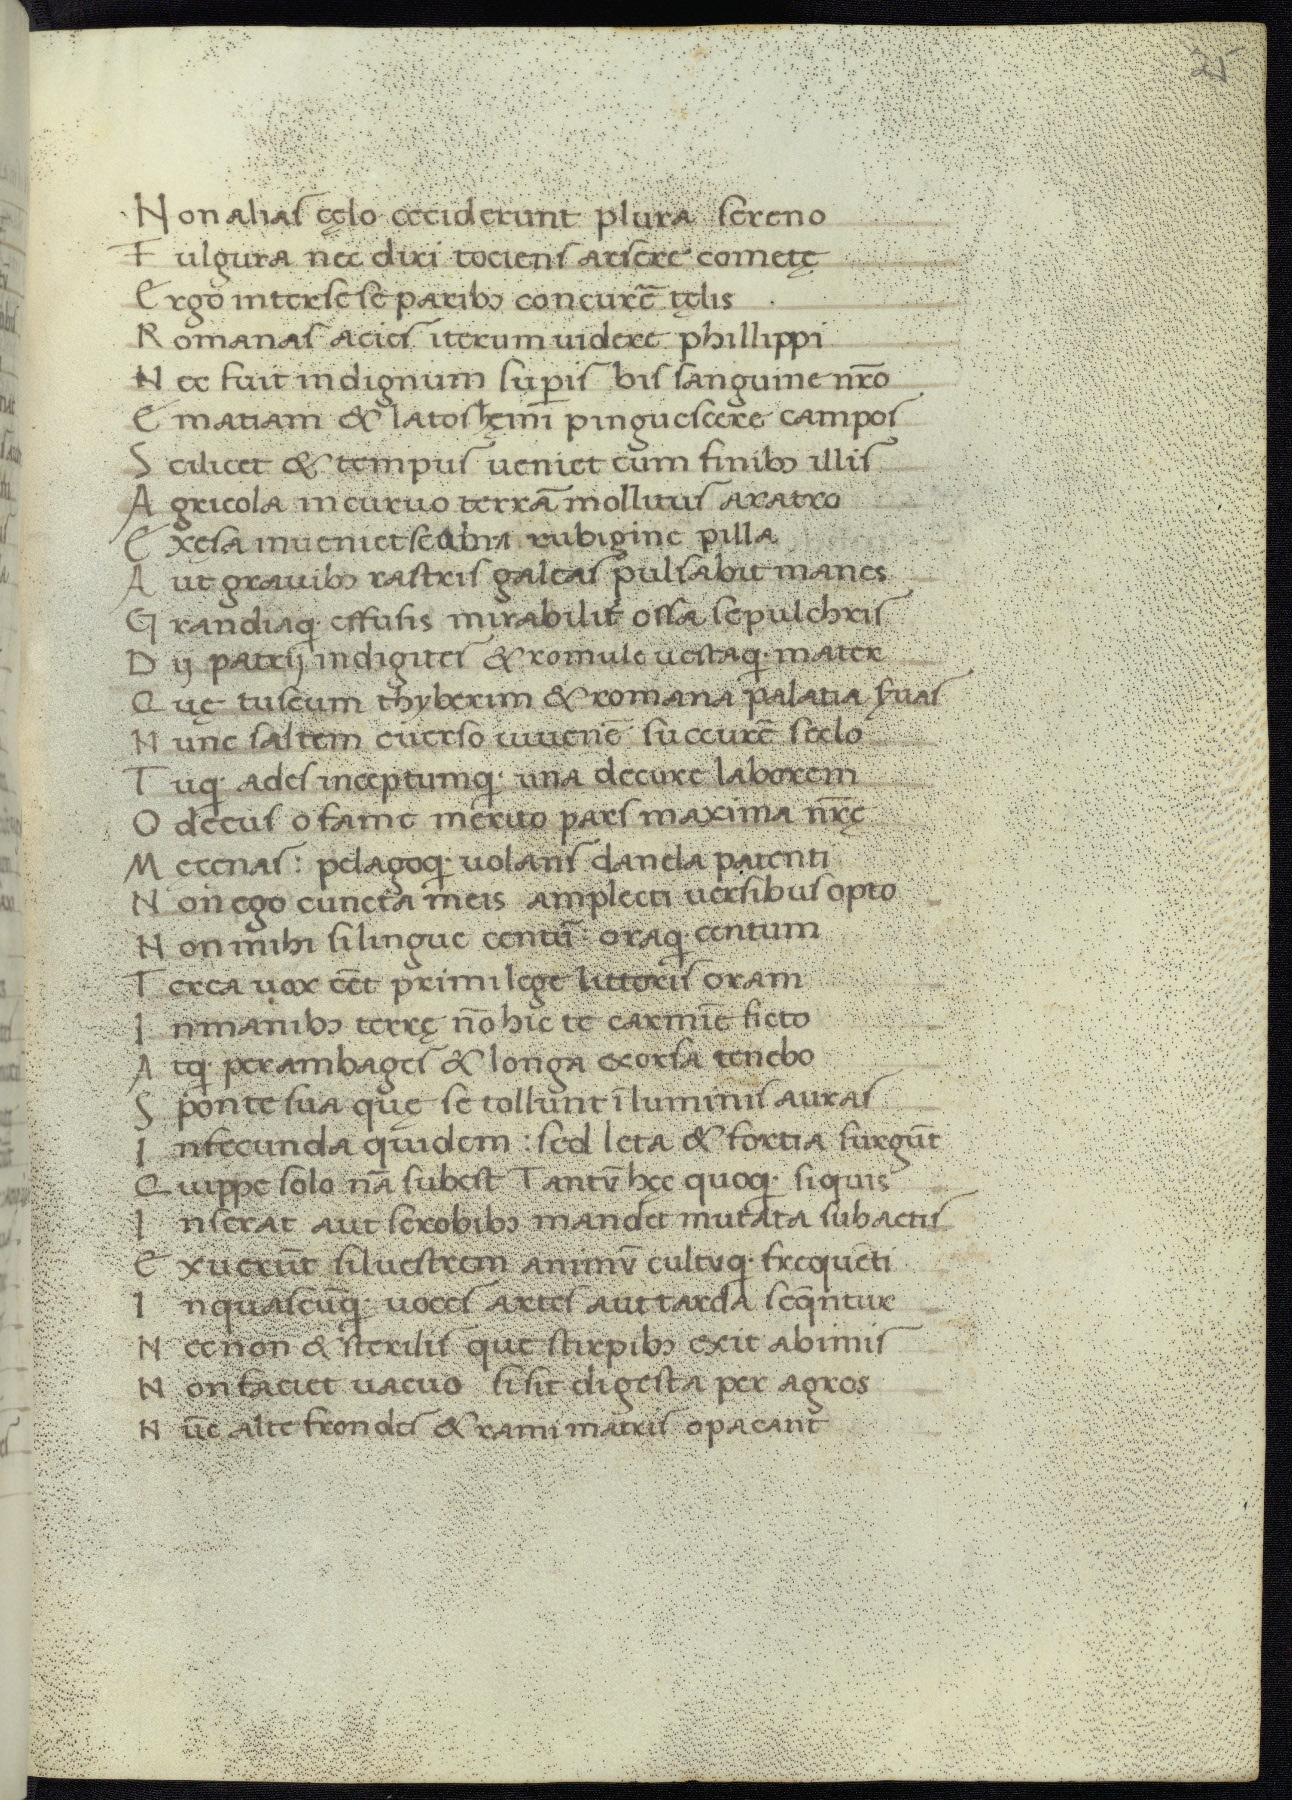 25
Non alias cęlo ceciderunt plura sereno
Fulgura nec diri tociens arsere cometę
Ergo inter se se paribꝫ concurr̄e tęlis
Romanas acies iterum uidere phillippi
Nec fuit indignum sup̄is bis sanguine nr̄o
Ematiam & latos hęmī pinguescere campos
Scilicet & tempus ueniet cum finibꝫ illis
Agricola incuruo terrā mollitus aratro
Exęsa inueniet scabra rubigine pilla
Aut grauibꝫ rastris galeas pulsabit manes
Grandiaq· effusis mirabilit̄ ossa sepulchris
Dij patrij indigites & romule uestaq· mater
Quę tuscum thyberim & romana palatia s̨uas
Nunc saltem euerso iuuenē succurr̄e seclo
Tuq· ades inceptumq· una decure laborem
O decus o fame merito pars maxima nr̄ę
Mecenas: pelagoq· uolans da uela patenti
Non ego cuncta meis amplecti uersibus opto
Non mihi si lingue centū· oraq· centum
Terea uox eēt primi lege littoris oram
In manibꝫ terrę nō hic te carmīe ficto
Atq· per ambages & longa exorsa tenebo
Sponte sua quę se tollunt ī luminis auras
Infecunda quidem: sed leta & fortia surgūt
Quippe solo nā subest Tantū hęc quoq· siquis
Inserat aut scrobibꝫ mandet mutata subactis
Exuerūt siluestrem animū cultuq· frequēti
In quascūq· uoces artes aut tarda seq̄ntur
Nec non & sterilis que stirpibꝫ exit ab imis
Non faciet uacuo si sit digesta per agros
Nūc alte frondes & rami matris opacant